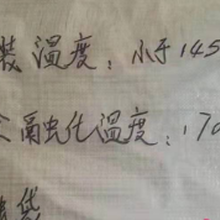 装温度：小于145
融化温度：170
袋